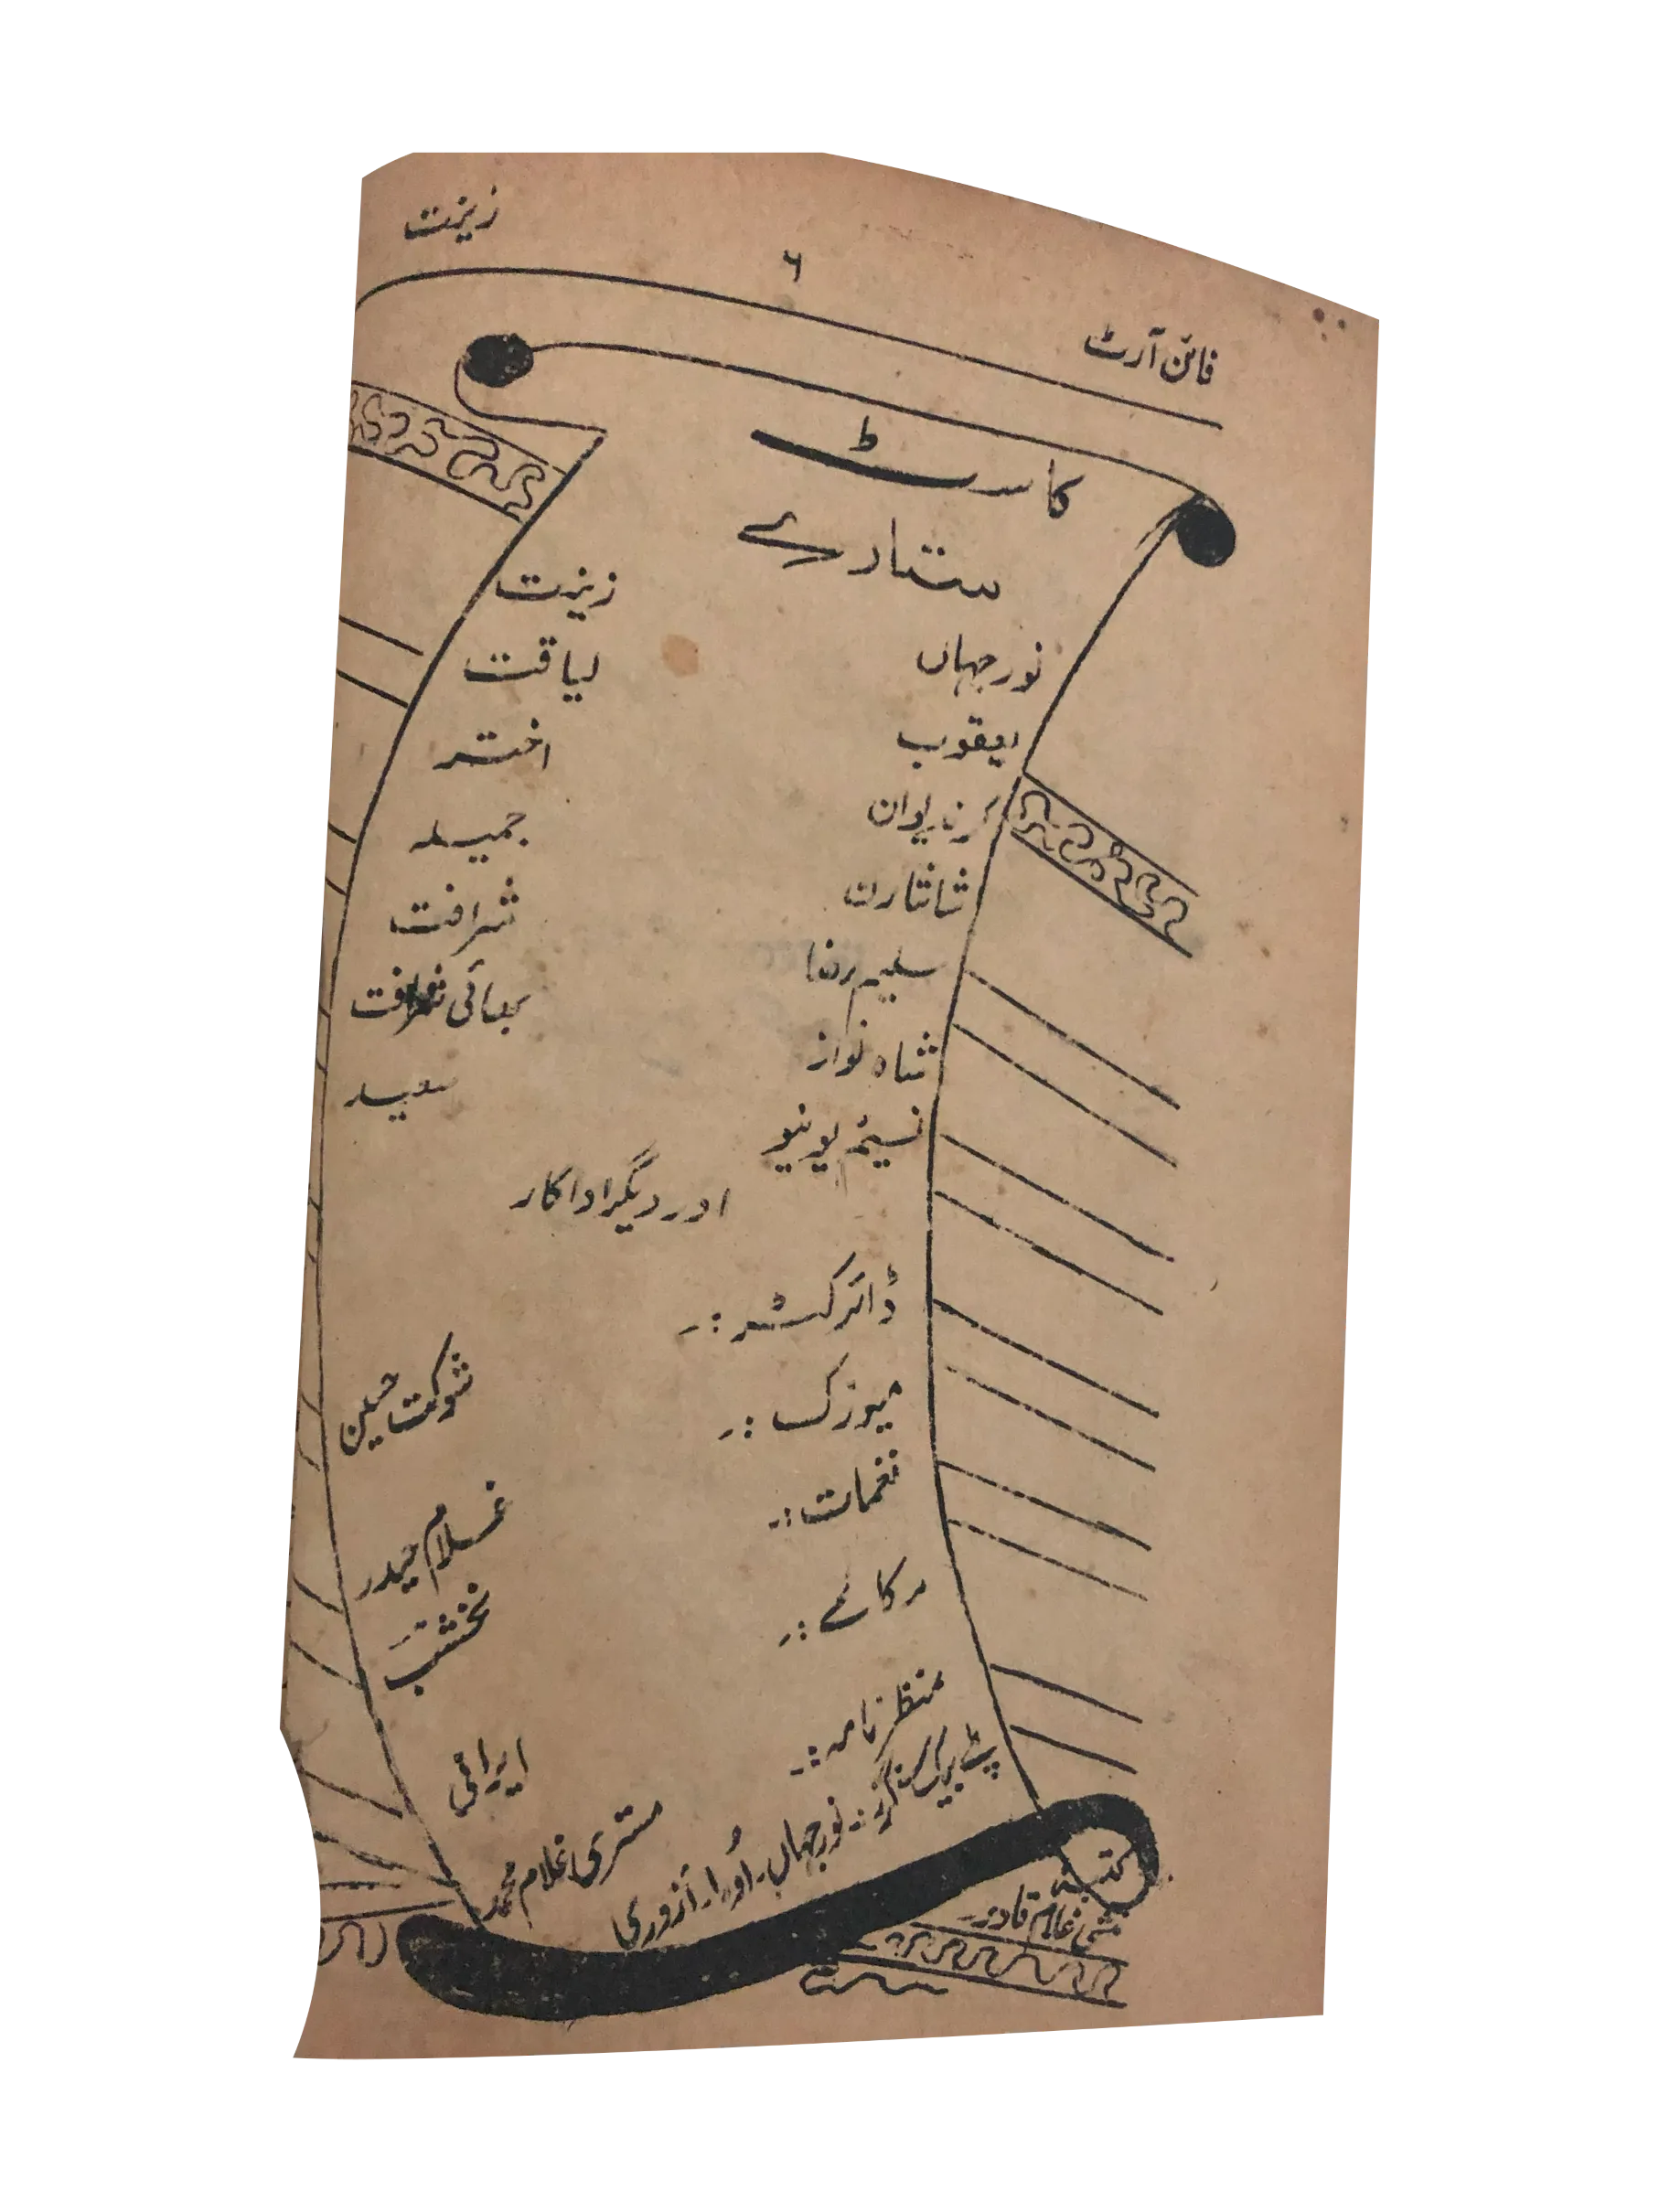 فائن آرٹ ۶ زینت
کاسٹ
ستارے
نورجہاں زینت
یعقوب لیاقت
کرن دیوان اختر
شانتارن جمیلہ
سلیم رضا شرافت
شاہ نواز بھائی شرافت
نسیمؔ جونیو سعید
اور دیگر اداکار
ڈائرکٹر :۔ شوکت حسین
میوزک :۔ غلام حیدر
نغمات :۔ نخشب
مکالمے :۔
منظرنامہ :۔ ایرانی
مستری غلام محمد
پلے بیک سنگرز :۔ نورجہاں۔ اُور ا۔ آزوری
کتبہ
منشی غلام قادر۔